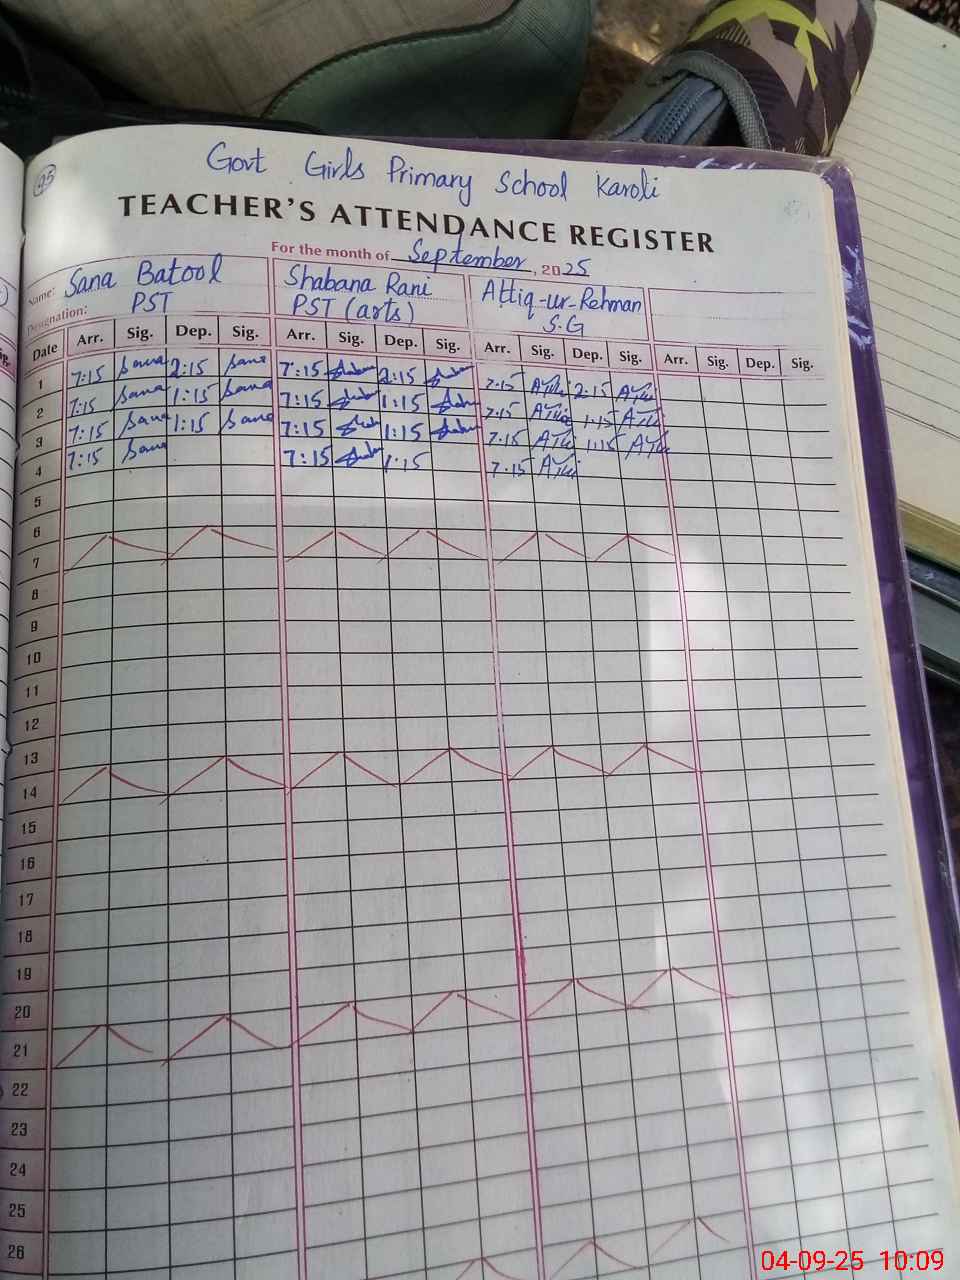 125
Govt Girls Primary School Karoli
TEACHER'S ATTENDANCE REGISTER
For the month of September, 2025
Name: Sana Batool Shabana Rani Attiq-ur-Rehman
Designation: PST PST (arts) S.G
Date Arr. Sig. Dep. Sig. Arr. Sig. Dep. Sig. Arr. Sig. Dep. Sig. Arr. Sig. Dep. Sig.
1 7:15 Sana 2:15 Sana 7:15 2:15 7.15 2.15
2 7:15 Sana 1:15 Sana 7:15 1:15 7.15 1.15
3 7:15 Sana 1:15 Sana 7:15 1:15 7.15 1:15
4 7:15 Sana 7:15 1:15 7.15
5
6
7
8
9
10
11
12
13
14
15
16
17
18
19
20
21
22
23
24
25
26
04-09-25 10:09